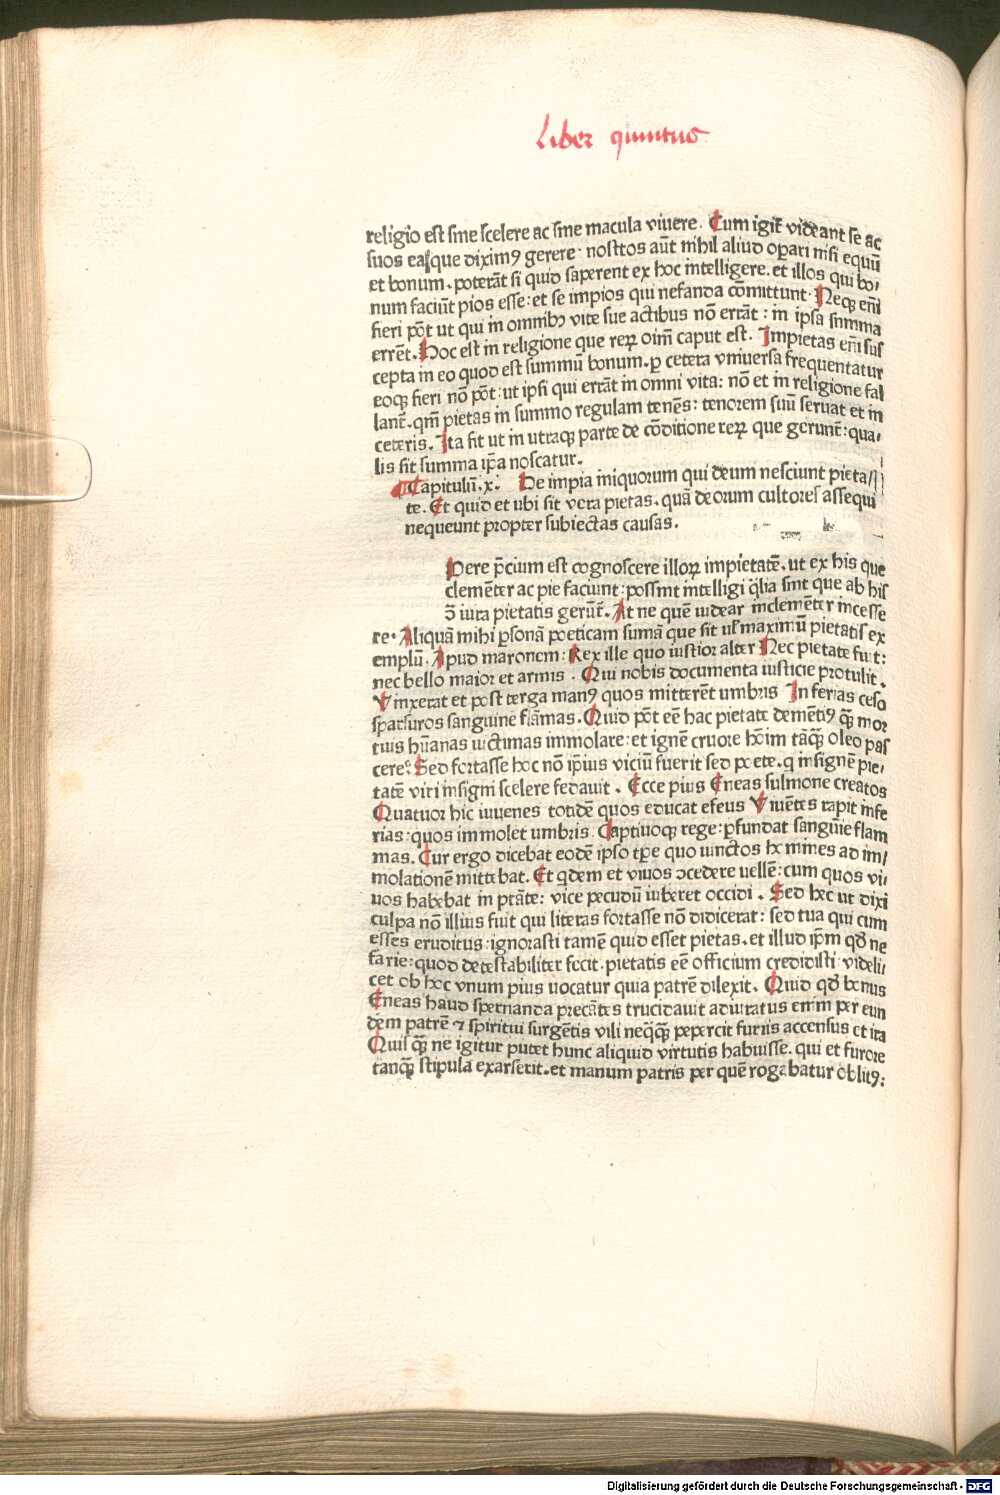 Liber quintus
religio est sine scelere ac sine macula viuere. Cum igit̄ videant se ac
suos easque diximꝰ gerere· nostros aūt nihil aliud oꝑari nisi equū
et bonum. poterāt si quid saperent ex hoc intelligere. et illos qui bo⸗
num faciūt pios esse: et se impios qui nefanda cōmittunt· Neqꝫ em̄
fieri pōt ut qui in omnibꝫ vite sue actibus nō errāt: in ipsa summa
errēt. Hoc est in religione que reꝝ oīm caput est. Impietas em̄ sus
cepta in eo quod est summū bonum. ꝑ cetera vniuersa frequentatur
eoqꝫ fieri nō pōt: ut ipsi qui errāt in omni vita: nō et in religione fal
lant̄. qm̄ pietas in summo regulam tenēs: tenorem suū seruat et in
ceteris. Ita fit ut in utraqꝫ parte de cōditione reꝝ que gerunt̄: qua⸗
lis sit summa ip̄a noscatur.
Capitulū. x. De impia iniquorum qui deum nesciunt pieta/
te. Et quid et ubi sit vera pietas. quā deorum cultores assequi
nequeunt propter subiectas causas.
Opere p̄cium est cognoscere illoꝝ impietatē. ut ex his que
clemēter ac pie faciunt: possint intelligi q̄lia sint que ab his
ↄ̄ iura pietatis gerūt̄. At ne quē uidear inclemēter incesse
re· Aliquā mihi ꝑsonā poeticam sumā que sit ul̓ maximū pietatis ex
emplū. Apud maronem: Rex ille quo iustior alter Nec pietate fuit:
nec bello maior et armis . Qui nobis documenta iusticie protulit.
Vinxerat et post terga manꝰ quos mitterēt umbris Inferias ceso
sparsuros sanguine flāmas. Quid pōt eē hac pietate demētiꝰ q̄ꝫ mor
tuis hūanas uictimas immolare: et ignē cruore hoīm tāq̄ꝫ oleo pas
cere: Sed fortasse hoc nō ip̄ius viciū fuerit sed poete. q insignē pie⸗
tatē viri insigni scelere fedauit . Ecce pius Eneas sulmone creatos
Quatuor hic iuuenes totidē quos educat efeus Viuētes rapit infe
rias: quos immolet umbris Captiuoqꝫ rege: ꝑfundat sanguīe flam
mas. Cur ergo dicebat eodē ipso tp̄e quo iunctos homines ad im/
molationē mittebat. Et qdem et viuos ↄcedere uellē: cum quos vi/
uos habebat in ptāte: vice pecudū iuberet occidi . Sed hec ut dixi
culpa nō illius fuit qui literas fortasse nō didicerat: sed tua qui cum
esses eruditus: ignorasti tamē quid esset pietas. et illud ip̄m qd̓ ne
farie: quod detestabiliter fecit. pietatis eē officium credidisti: videli/
cet ob hoc vnum pius uocatur quia patrē dilexit. Quid qd̓ bonus
Eneas haud spernanda precātes trucidauit adiuratus enim per eun
dem patrē ⁊ spiritui surgētis vili neq̄qꝫ pepercit furiis accensus et ita
Quis q̄ꝫ ne igitur putet hunc aliquid virtutis habuisse. qui et furore
tanq̄ꝫ stipula exarserit. et manum patris per quē rogabatur oblitꝰ:
Digitalisierung gefördert durch die Deutsche Forschungsgemeinschaft - DFG